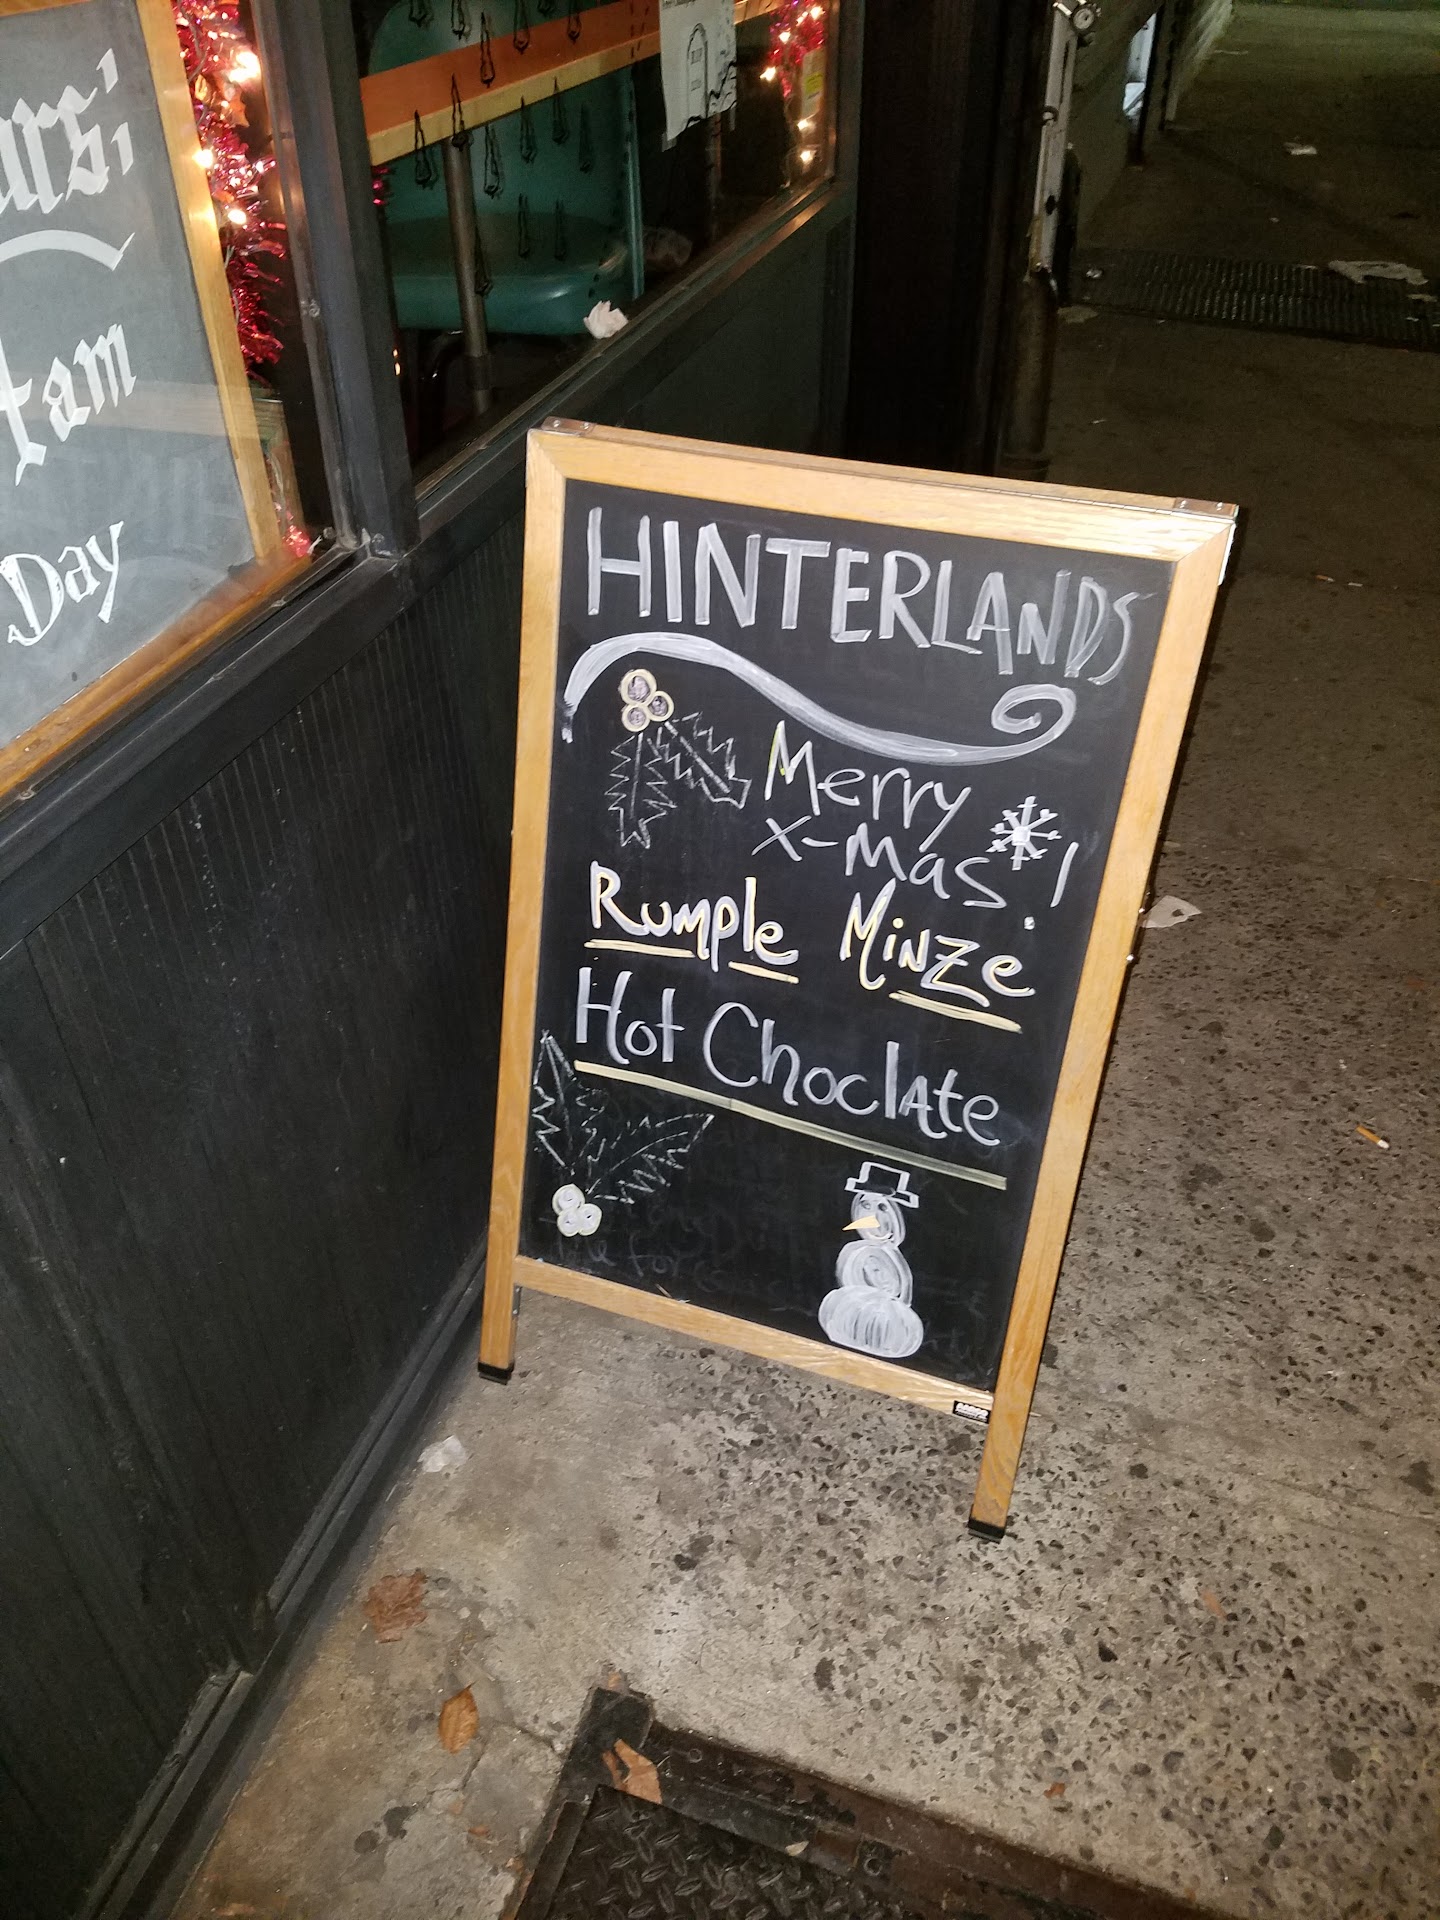 4am
Day
HINTERLANDS
Merry
X-Mas!
Rumple Minze
Hot Choclate